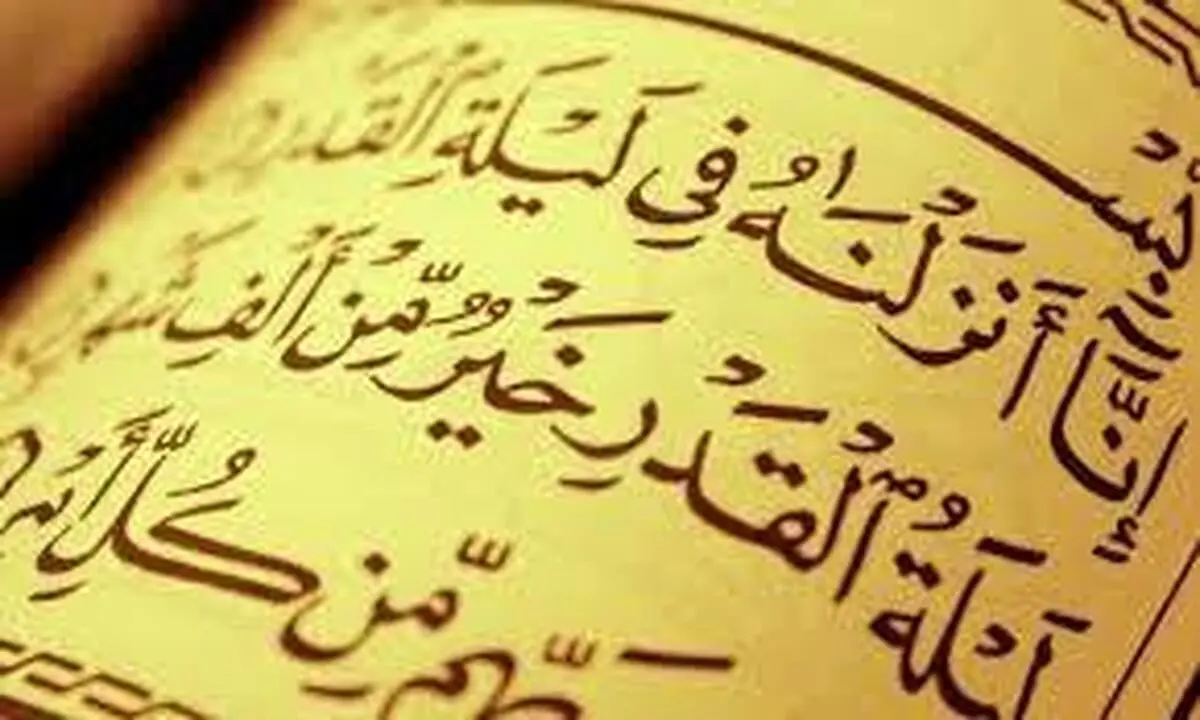 بِسْ
إِنَّا أَنزَلْنَٰهُ فِى لَيْلَةِ ٱلْقَدْرِ
لَيْلَةُ ٱلْقَدْرِ خَيْرٌ مِّنْ أَلْفِ شَهْرٍ
مِّن كُلِّ أَمْرٍ